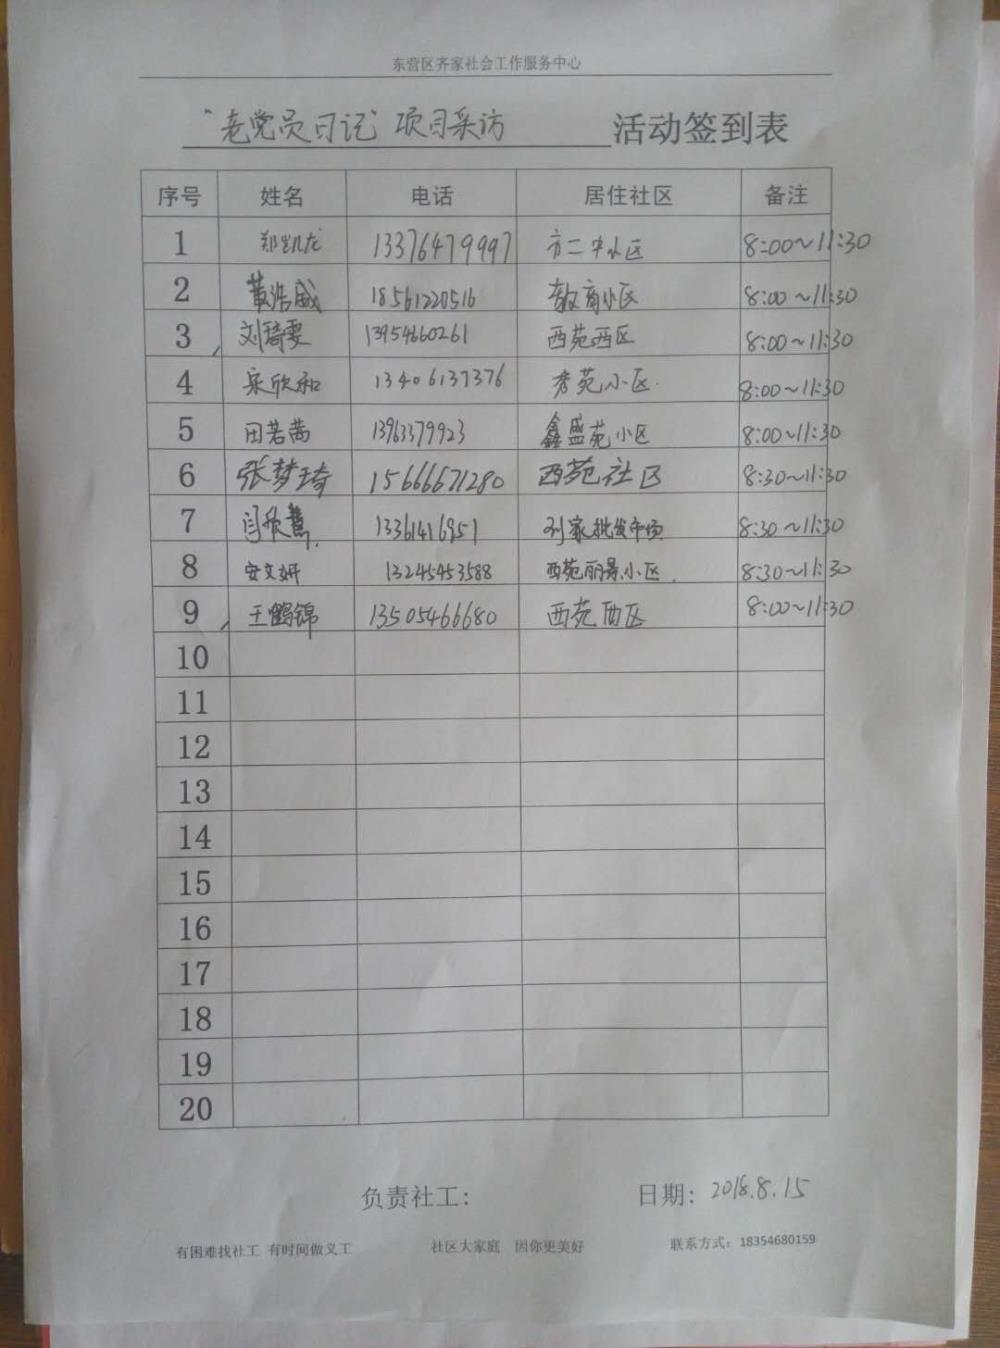 东营区齐家社会工作服务中心
“老党员日记”项目采访 活动签到表
序号 姓名 电话 居住社区 备注
1 郑凯龙 13376479997 市二中小区 8:00~11:30
2 黄浩威 18561220516 教育小区 8:00~11:30
3 刘琦雯 13954660261 西苑西区 8:00~11:30
4 宋欣和 13406137376 秀苑小区 8:00~11:30
5 田若茜 13963379923 鑫盛苑小区 8:00~11:30
6 张梦琦 15666671280 西苑社区 8:30~11:30
7 闫欣 13361416951 刘家批发市场 8:30~11:30
8 安文妍 13245453588 西苑丽景小区 8:30~11:30
9 王鹤锦 13505466680 西苑西区 8:00~11:30
10
11
12
13
14
15
16
17
18
19
20
负责社工： 日期：2018.8.15
有困难找社工 有时间做义工 社区大家庭 因你更美好 联系方式：18354680159